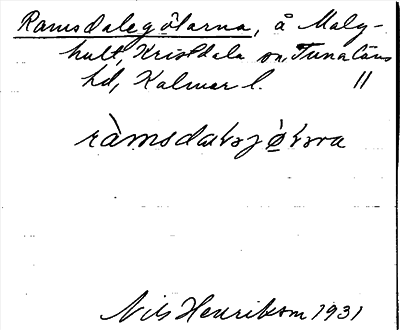 Ramsdalegölarna, å Malg-
hult, Kristdala sn, Tunaläns
hd, Kalmar l. ॥
ràmsdaləjø̀ləra
Nils Henrikson 1931